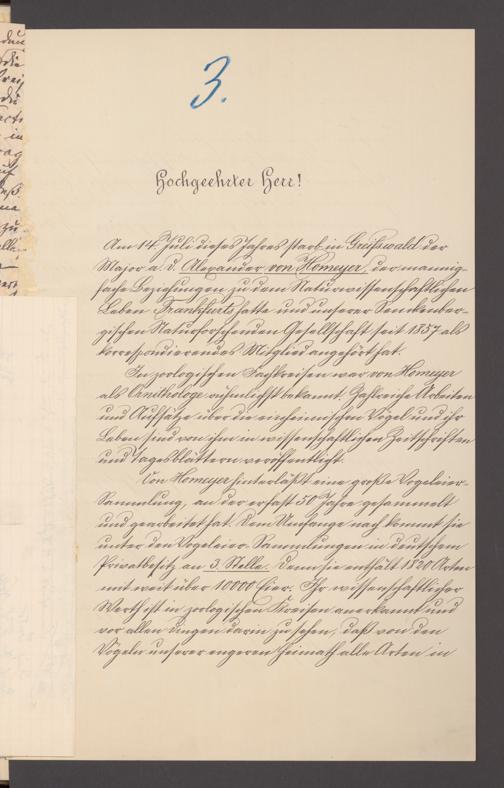 3.
Hochgeehrter Herr!
Am 14. Juli dieses Jahres starb in Greifswald der
Major a. D. Alexander von Homeyer, der mannig-
fache Beziehungen zu dem Naturwissenschaftlichen
Leben Frankfurts hatte und unserer Senckenber-
gischen Naturforschenden Gesellschaft seit 1857 als
korrespondierendes Mitglied angehört hat.
In zoologischen Fachkreisen war von Homeyer
als Ornithologe rühmlichst bekannt. Zahlreiche Arbeiten
und Aufsätze über die einheimischen Vögel und ihr
Leben sind von ihm in wissenschaftlichen Zeitschriften
und Tagesblättern veröffentlicht.
Von Homeyer hinterläßt eine große Vogeleier-
Sammlung, an der er fast 50 Jahre gesammelt
und gearbeitet hat. Dem Umfange nach kommt sie
unter den Vogeleier-Sammlungen in deutschem
Privatbesitz an 3. Stelle. Denn sie enthält 1520 Arten
mit weit über 10000 Eier. Ihr wissenschaftlicher
Werth ist in zoologischen Kreisen anerkannt und
vor allen Dingen darin zu sehen, daß von den
Vögeln unserer engeren Heimath alle Arten in